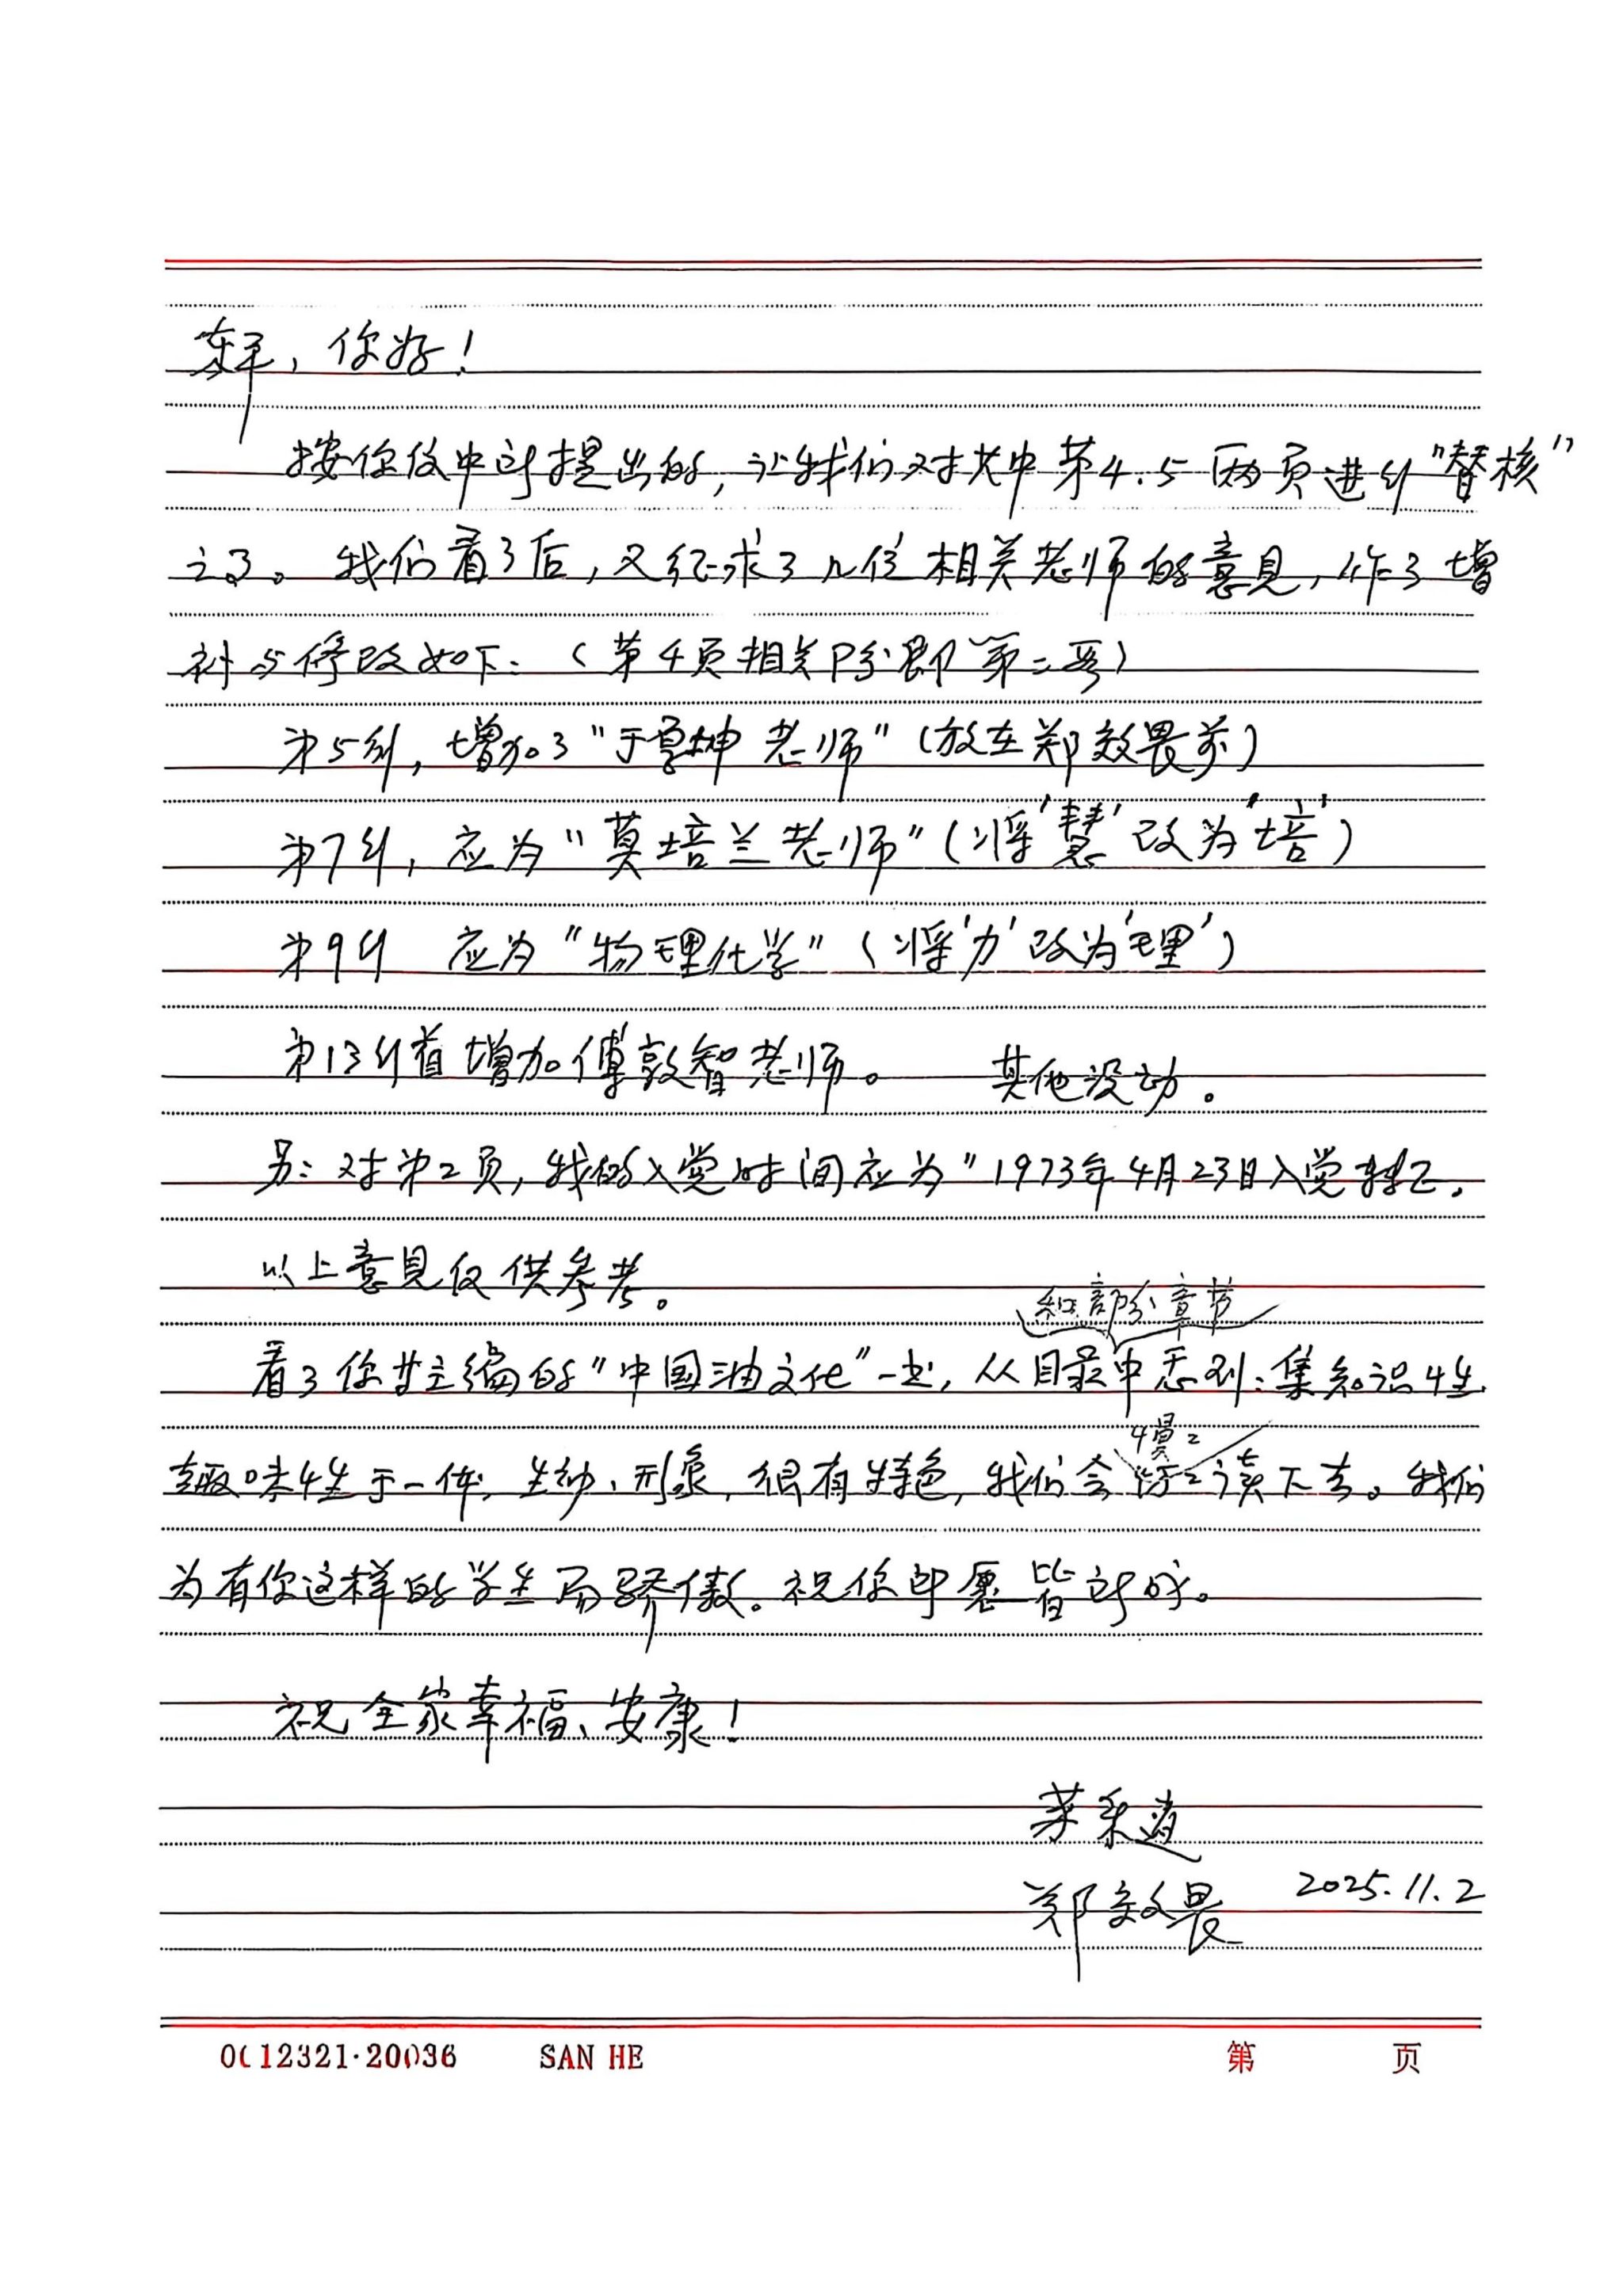 东平，你好！
按你信中所提出的，让我们对其中第4.5两页进行“替核”
之了。我们看了后，又征求了几位相关老师的意见，作了增
补与修改如下：（第4页相关部分即第二页）
第5行，增加了“于厚坤老师”（放在郑效畏前）
第7行，应为“莫培兰老师”（将‘慧’改为‘培’）
第9行 应为“物理化学”（将‘力’改为‘理’）
第13行首增加傅敦智老师。 其他没动。
另：对第2页，我的入党时间应为“1973年4月23日入党转正。
以上意见仅供参考。
和部分章节
看了你主编的“中国油文化”一书，从目录中悉到：集知识性
慢慢
趣味性于一体，生动、形象，很有特色，我们会读下去。我们
为有你这样的学生而骄傲。祝你所愿皆所成。
祝全家幸福、安康！
秉道
郑效畏 2025.11.2
0012321·20036 SAN HE 第 页